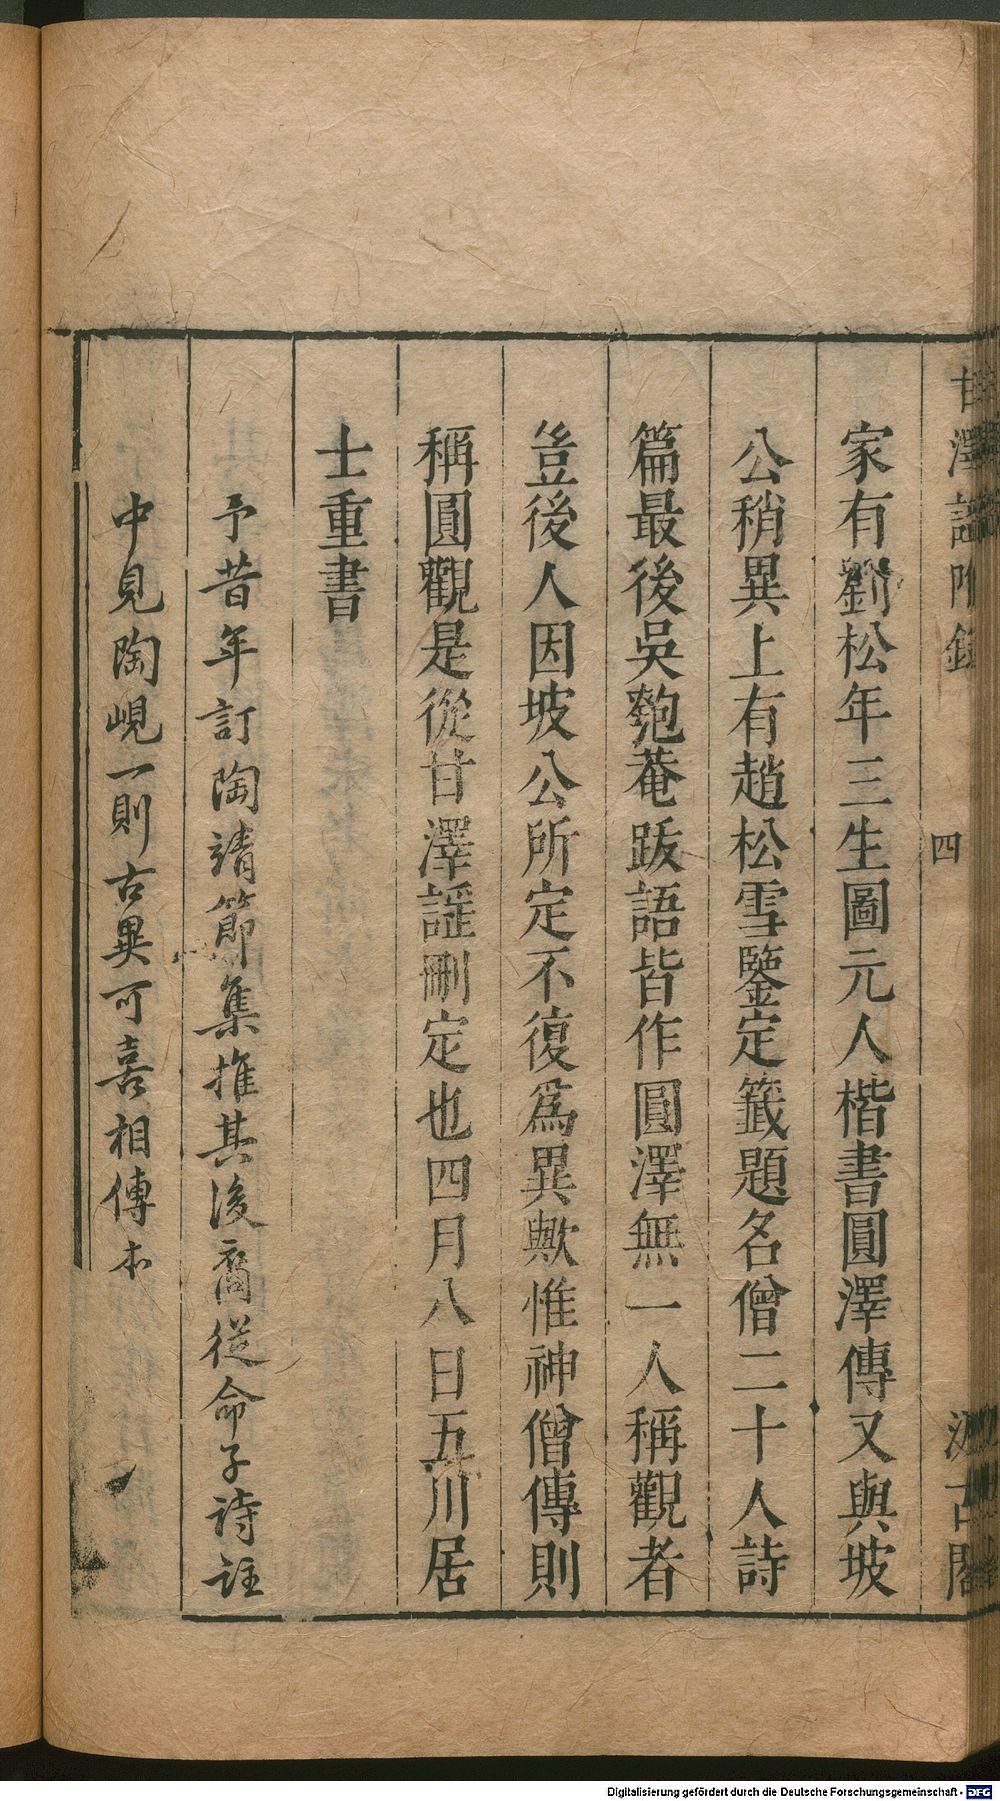 甘澤謠附錄 四 汲古閣
家有劉松年三生圖元人楷書圓澤傳又與坡
公稍異上有趙松雪鑒定籤題名僧二十人詩
篇最後吳匏菴跋語皆作圓澤無一人稱觀者
豈後人因坡公所定不復爲異歟惟神僧傳則
稱圓觀是從甘澤謠刪定也四月八日五川居
士重書
予昔年訂陶靖節集推其後裔從命子詩註
中見陶峴一則古異可喜相傳本
Digitalisierung gefördert durch die Deutsche Forschungsgemeinschaft - DFG